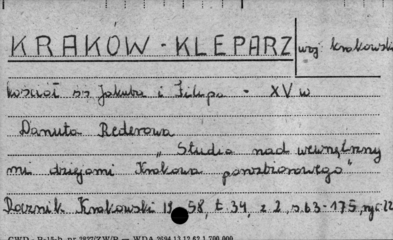 KRAKÓW - KLEPARZ
woj. krakowski
kościół śś Jakuba i Filipa - XV w
Danuta Rederowa
"Studia nad wewnętrzny
mi dziejami Krakowa porozbiorowego"
Rocznik Krakowski 1958, t. 34, z. 2, s. 63-175, ryc. 22